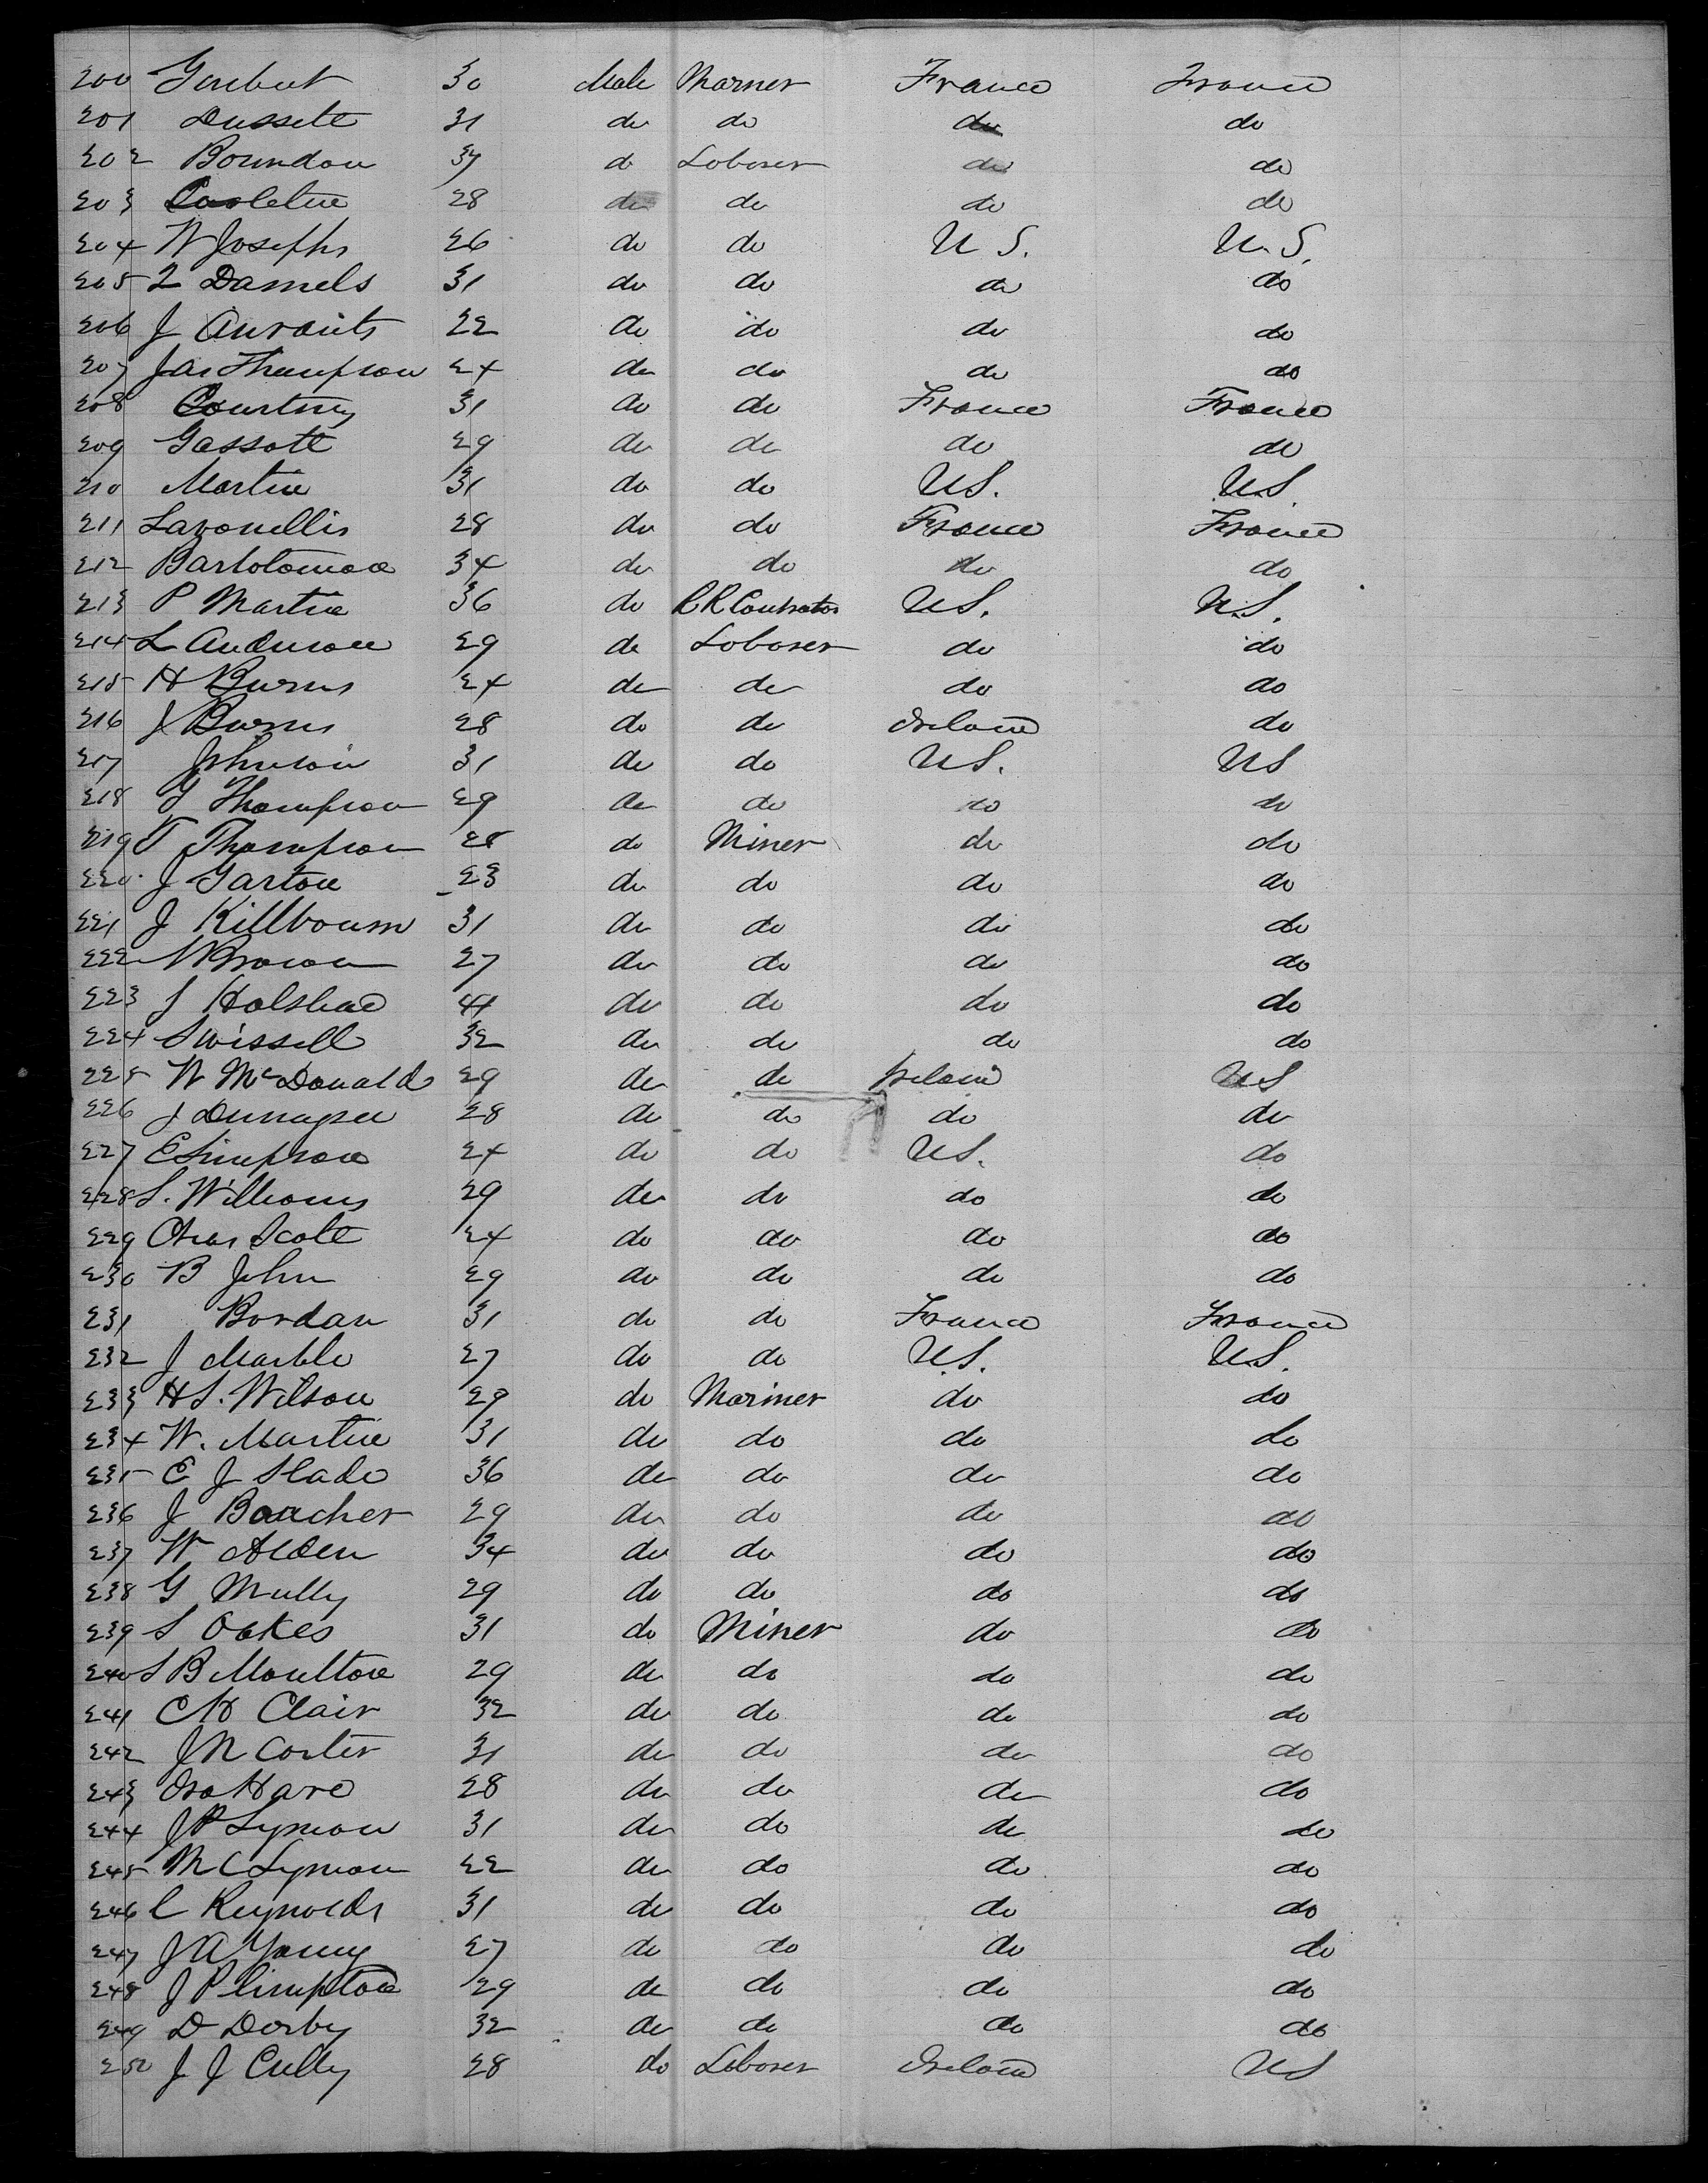 200 Goubert 30 Male Marner France France
201 Dussett 31 do do do do
202 Boundon 37 do Laborer do do
203 28 do do do do
204 W Josephs 26 do do U S. U.S.
205 L Daniels 31 do do do do
206 J 22 do do do do
207 Jas Thompson 24 do do do do
208 Courtney 31 do do France France
209 Gassott 29 do do do do
210 Martin 31 do do US. U.S.
211 Lavonellis 28 do do France France
212 Bartolomae 34 do do do do
213 P Martin 36 do R R Contrator US. U.S.
214 L Anderson 29 do Laborer do do
215 H Burns 24 do do do do
216 J Burns 28 do do Ireland do
217 Johnson 31 do do US. US
218 G Thompson 29 do do do do
219 T Thompson 28 do Miner do do
220 J Garton 23 do do do do
221 J Killbourn 31 do do do do
222 N Brown 27 do do do do
223 S Halstead 44 do do do do
224 Swissell 32 do do do do
225 W McDonald 29 do do Ireland US
226 J 28 do do do do
227 E Simpson 24 do do US. do
228 S. Williams 29 do do do do
229 Chas Scott 24 do do do do
230 B John 29 do do do do
231 Bordan 31 do do France France
232 J Marble 27 do do US. U.S.
233 H S. Wilson 29 do Mariner do do
234 W. Martin 31 do do do do
235 E J Slade 36 do do do do
236 J Boucher 29 do do do do
237 W Alden 34 do do do do
238 G Mully 29 do do do do
239 S Oakes 31 do Miner do do
240 S B Moulton 29 do do do do
241 C H Clair 32 do do do do
242 J N Carter 31 do do do do
243 Ira Hare 28 do do do do
244 J P Lyman 31 do do do do
245 M C Lyman 22 do do do do
246 C Reynolds 31 do do do do
247 J A Young 27 do do do do
248 J Plimpton 29 do do do do
249 D Derby 32 do do do do
250 J J Cully 28 do Laborer Ireland US